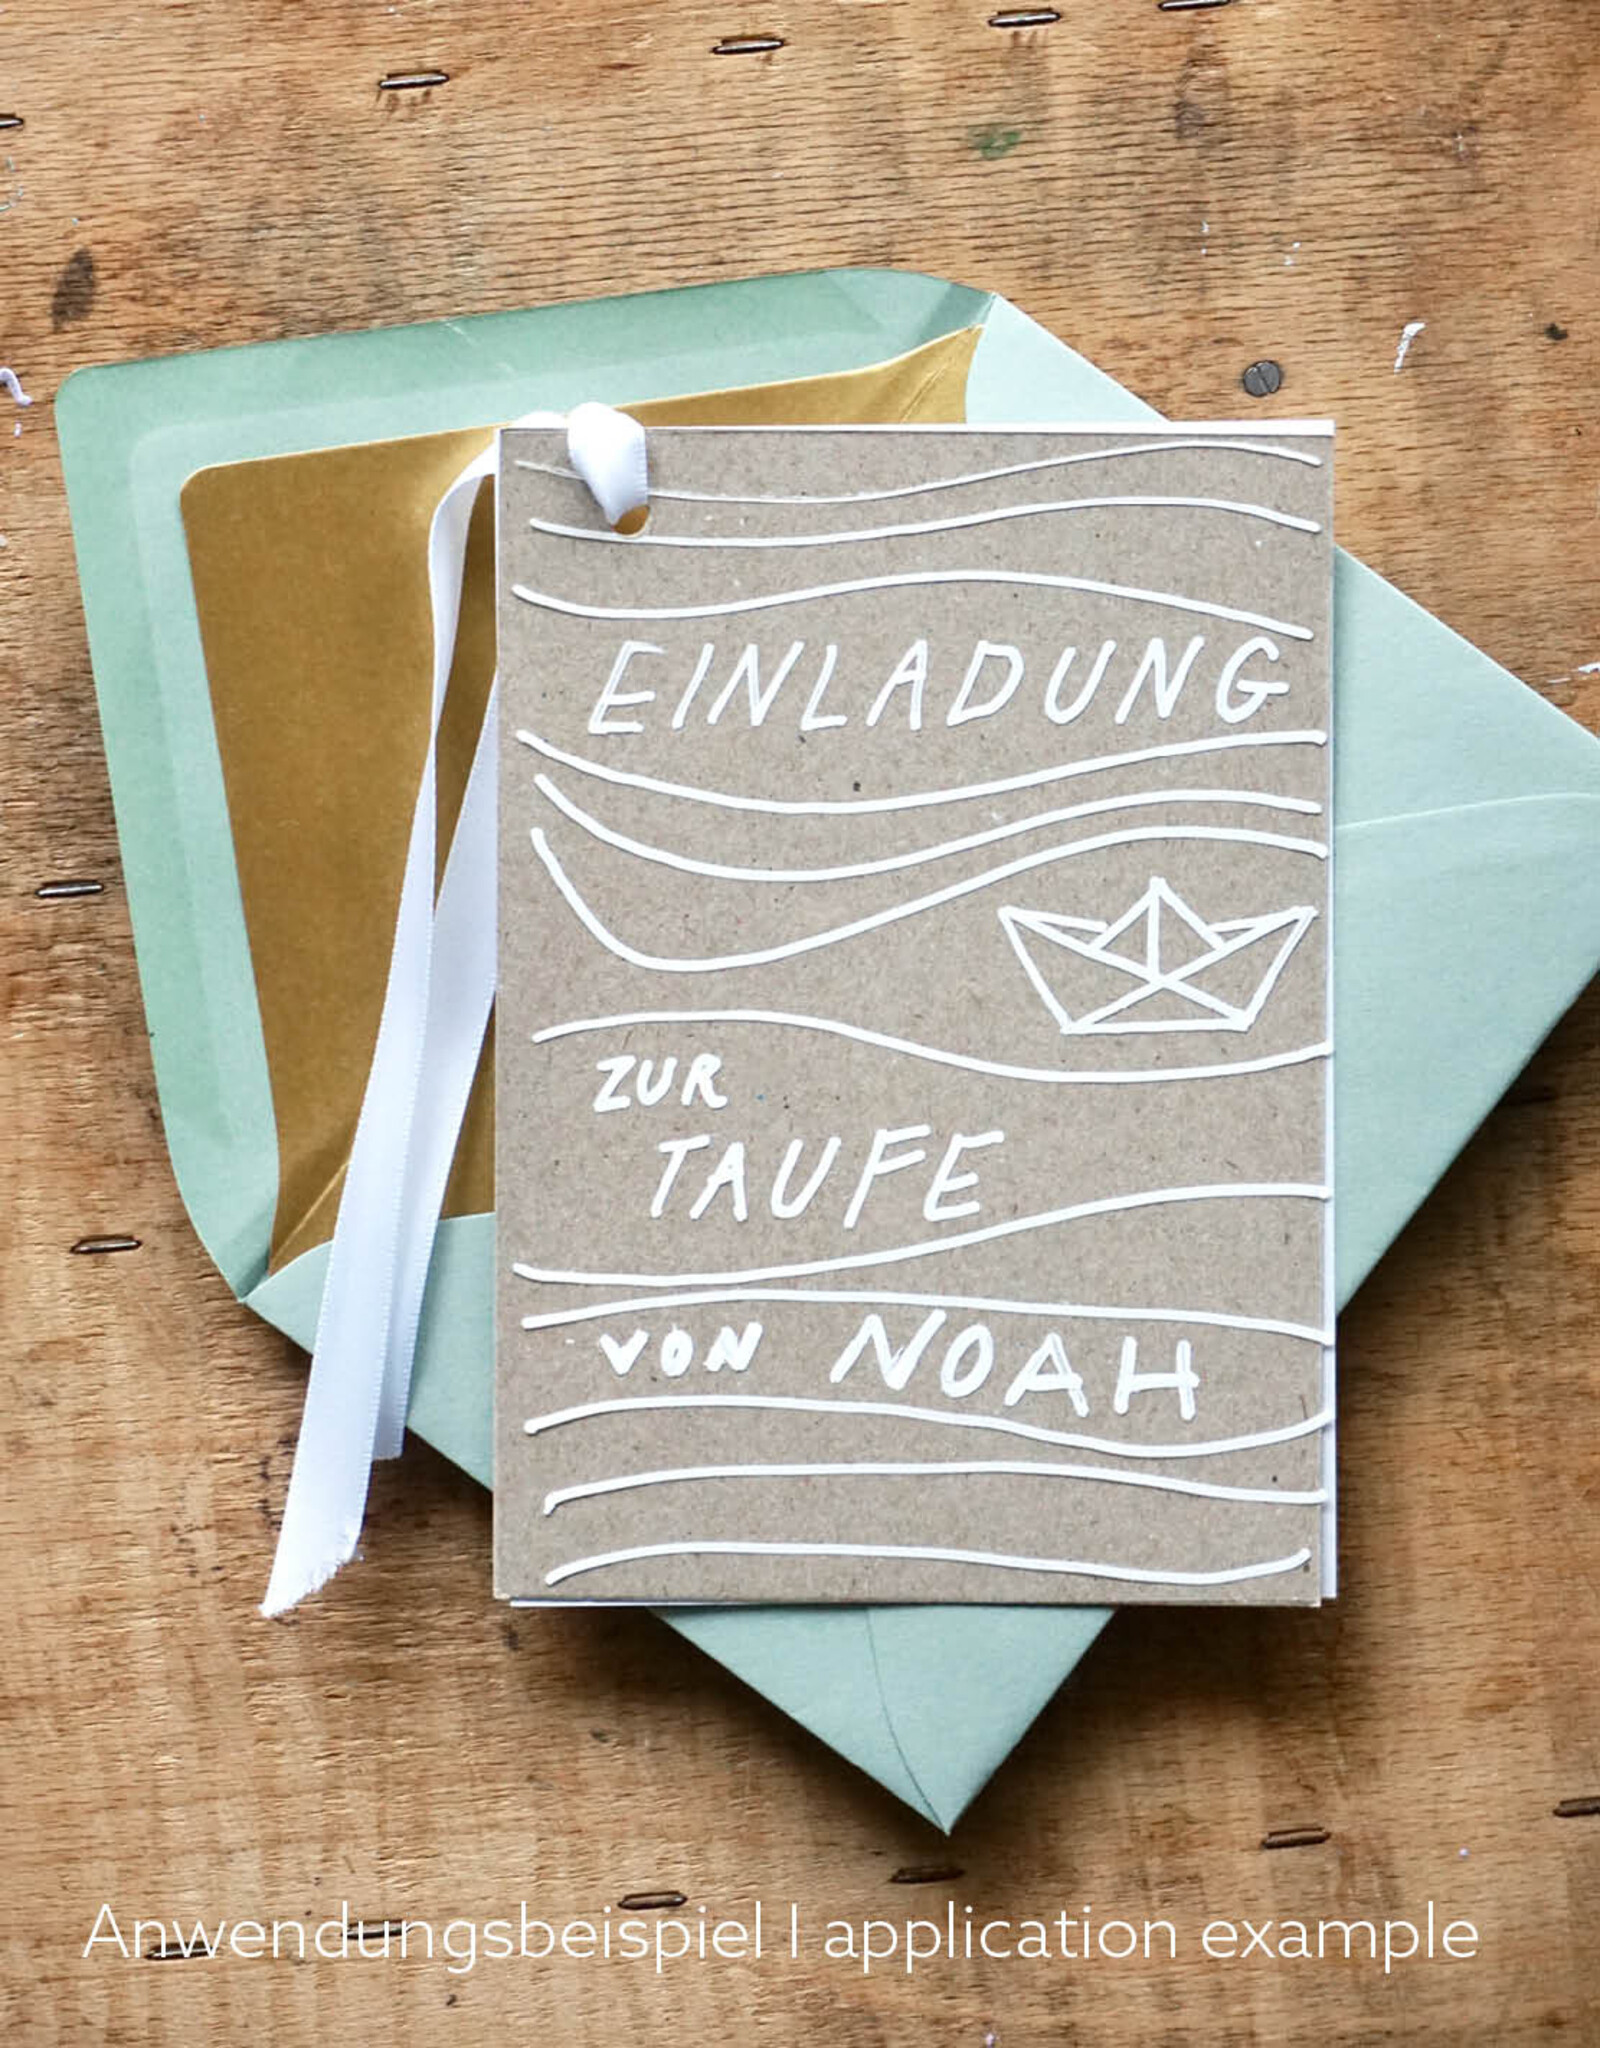 EINLADUNG
ZUR
TAUFE
VON NOAH
Anwendungsbeispiel | application example